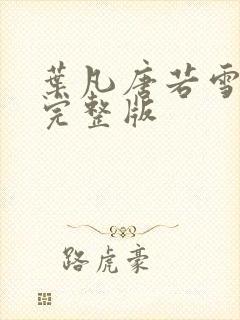 葉凡唐若雪
完整版
路虎豪